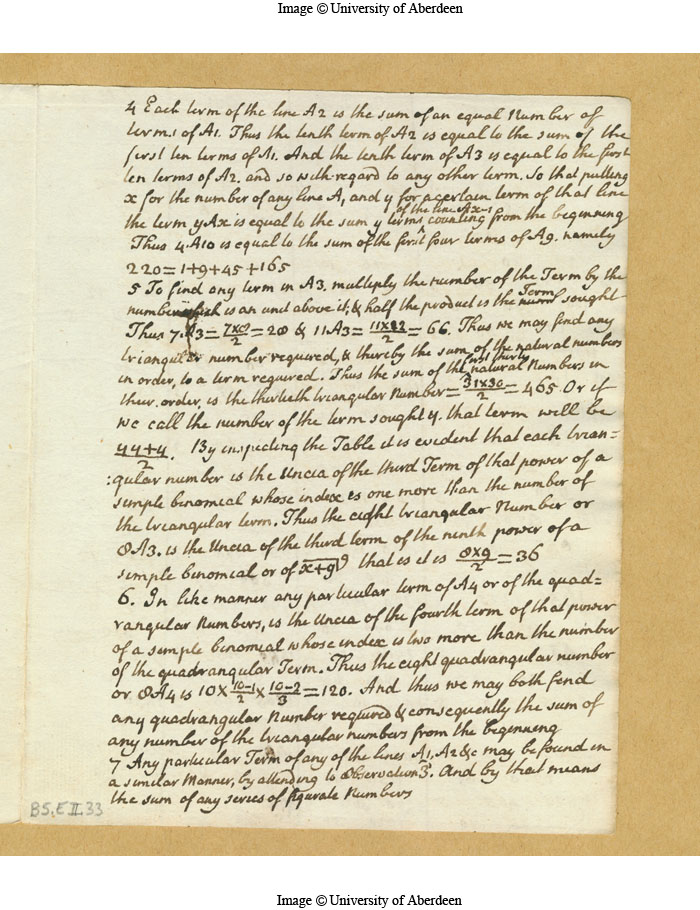 Image © University of Aberdeen
4 Each term of the line A2 is the sum of an equal Number of
terms of A1. Thus the tenth term of A2 is equal to the sum of the
first ten terms of A1. And the tenth term of A3 is equal to the first
ten terms of A2. and so with regard to any other term. So that putting
x for the number of any line A, and y for a certain term of that line
of the line Ax-1
the term yAx is equal to the sum y terms ^ counting from the beginning
Thus 4A10 is equal to the sum of the first four terms of A9. namely
220=1+9+45+165
5 To find any term in A3. multiply the number of the Term by the
Term
number which is an unit above it, & half the product is the sought
Thus 7.A3=7x8/2=28 & 11A3=11x12/2=66. Thus we may find any
triangular number required, & thereby the sum of the natural numbers
first thirty
in order, to a term required. Thus the sum of the natural Numbers in
their order, is the thirtieth triangular Number=31x30/2=465 Or if
we call the number of the term sought y. that term will be
yy+y/2. By inspecting the Table it is evident that each trian=
:gular number is the Uncia of the third Term of that power of a
simple binomial whose index is one more than the number of
the triangular term. Thus the eight triangular Number or
8A3. is the Uncia of the third term of the ninth power of a
simple binomial or of x+y|9 that is it is 8x9/2=36
6. In like manner any particular term of A4 or of the quad=
rangular Numbers, is the Uncia of the fourth term of that power
of a simple binomial whose index is two more than the number
of the quadrangular Term. Thus the eight quadrangular number
or 8A4 is 10x10-1/2x10-2/3=120. And thus we may both find
any quadrangular Number required & consequently the sum of
any number of the triangular numbers from the beginning
7 Any particular Term of any of the lines A1, A2 &c may be found in
a similar Manner, by attending to Observation 3. And by that means
the sum of any series of figurate Numbers
BS.E II.33
Image © University of Aberdeen